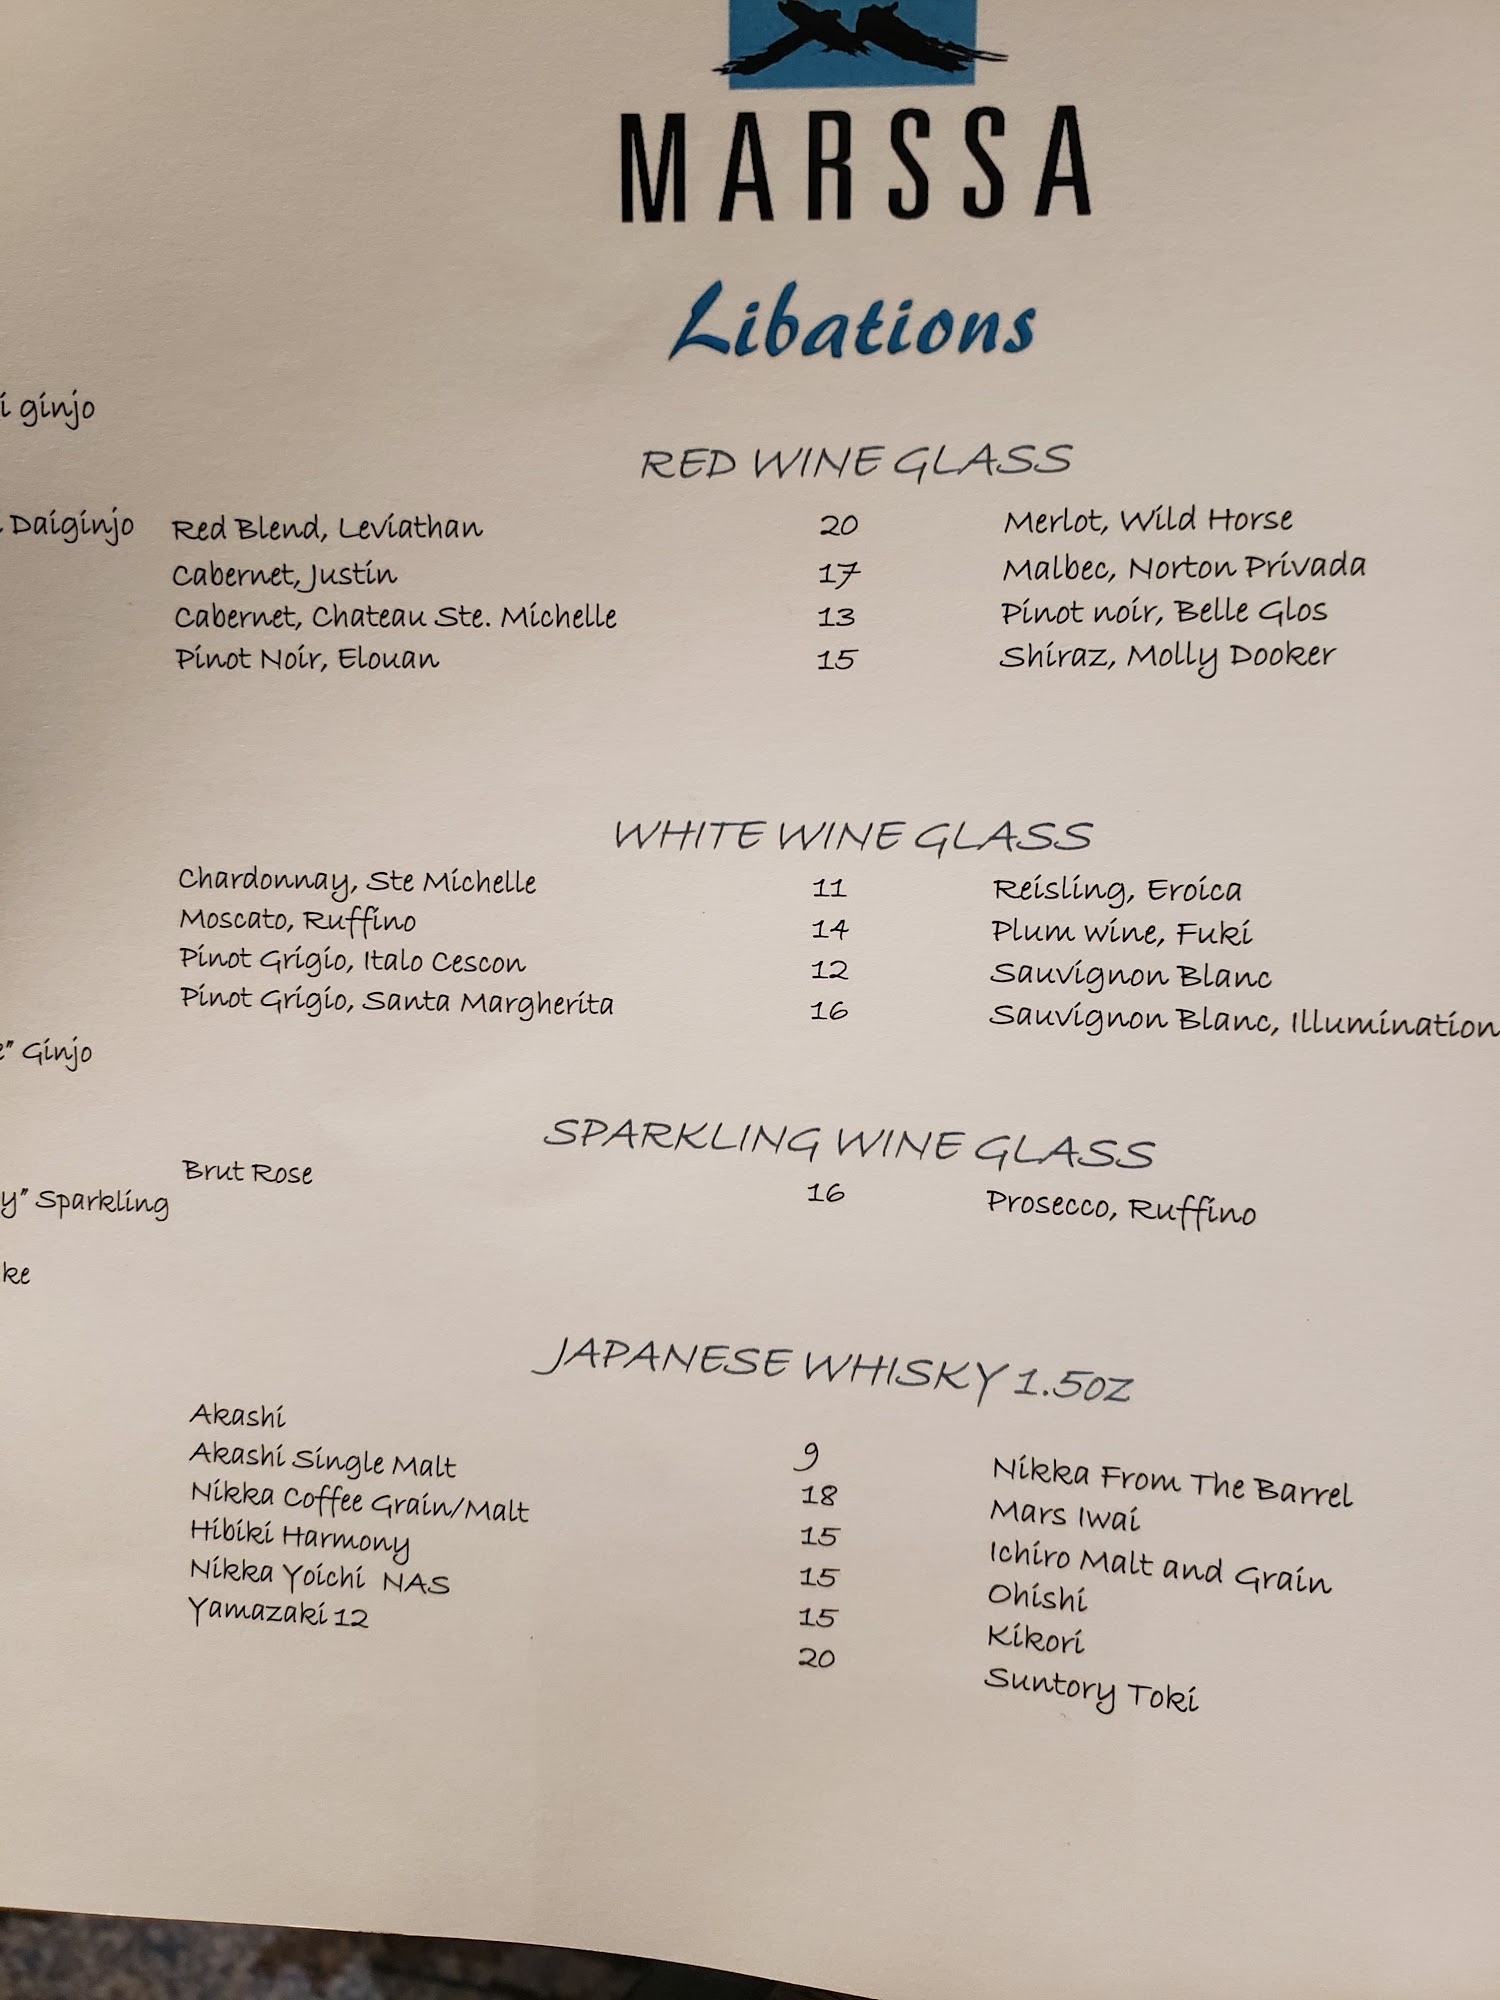 MARSSA
Libations
i ginjo
Daiginjo
e" Ginjo
y" Sparkling
ke
RED WINE GLASS
Red Blend, Leviathan 20 Merlot, Wild Horse
Cabernet, Justin 17 Malbec, Norton Privada
Cabernet, Chateau Ste. Michelle 13 Pinot noir, Belle Glos
Pinot Noir, Elouan 15 Shiraz, Molly Dooker
WHITE WINE GLASS
Chardonnay, Ste Michelle 11 Reisling, Eroica
Moscato, Ruffino 14 Plum wine, Fuki
Pinot Grigio, Italo Cescon 12 Sauvignon Blanc
Pinot Grigio, Santa Margherita 16 Sauvignon Blanc, Illumination
SPARKLING WINE GLASS
Brut Rose 16 Prosecco, Ruffino
JAPANESE WHISKY 1.5oz
Akashi 9 Nikka From The Barrel
Akashi Single Malt 18 Mars Iwai
Nikka Coffee Grain/Malt 15 Ichiro Malt and Grain
Hibiki Harmony 15 Ohishi
Nikka Yoichi NAS 15 Kikori
Yamazaki 12 20 Suntory Toki